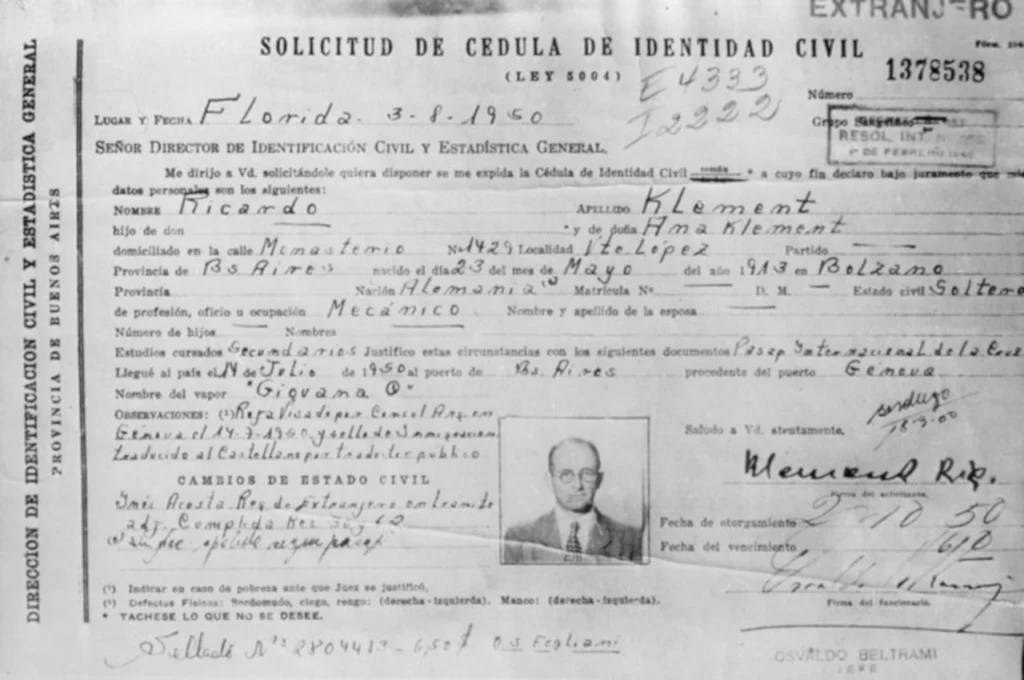 EXTRANJERO
SOLICITUD DE CEDULA DE IDENTIDAD CIVIL
(LEY 5004)
E 4333
I 2222
1378538
Número
Grupo Sanguíneo
RESOL. INT.
1º DE FEBRERO 1940
LUGAR Y FECHA Florida. 3-8-1950
SEÑOR DIRECTOR DE IDENTIFICACIÓN CIVIL Y ESTADÍSTICA GENERAL.
Me dirijo a Vd. solicitándole quiera disponer se me expida la Cédula de Identidad Civil * a cuyo fin declaro bajo juramento que mis
datos personales son los siguientes:
NOMBRE Ricardo APELLIDO Klement
hijo de don * y de doña Ana Klement
domiciliado en la calle Monasterio Nº 1429 Localidad Vte. López Partido
Provincia de Bs Aires nacido el día 23 del mes de Mayo del año 1913 en Bolzano
Provincia Nación Alemania Matrícula Nº D. M. Estado civil Soltero
de profesión, oficio u ocupación Mecánico Nombre y apellido de la esposa
Número de hijos Nombres
Estudios cursados Secundarios Justifico estas circunstancias con los siguientes documentos Pasap. Internacional de la Cruz
Llegué al país el 14 de Julio de 1950 al puerto de Bs. Aires procedente del puerto Génova
Nombre del vapor "Giovana C"
OBSERVACIONES: (¹) Roja Visado por Consul Arg. en
Génova el 14-7-1950 y sello de Inmigracion
traducido al Castellano por traductor público
CAMBIOS DE ESTADO CIVIL
Inés Acosta Reg. de Extranjero en tramite
adj. Cumplida
DIRECCION DE IDENTIFICACION CIVIL Y ESTADISTICA GENERAL
PROVINCIA DE BUENOS AIRES
Saludo a Vd. atentamente.
Klement Ric.
Firma del solicitante.
Fecha de otorgamiento 2-10 50
Fecha del vencimiento 60
Firma del funcionario.
(¹) Indicar en caso de pobreza ante que Juez se justificó.
(²) Defectus Físicos: Sordomudo, ciego, rengo: (derecha-izquierda). Manco: (derecha-izquierda).
* TACHESE LO QUE NO SE DESEE.
Sellado Nº 2804413 - 6,50 $
OSVALDO BELTRAMI
JEFE